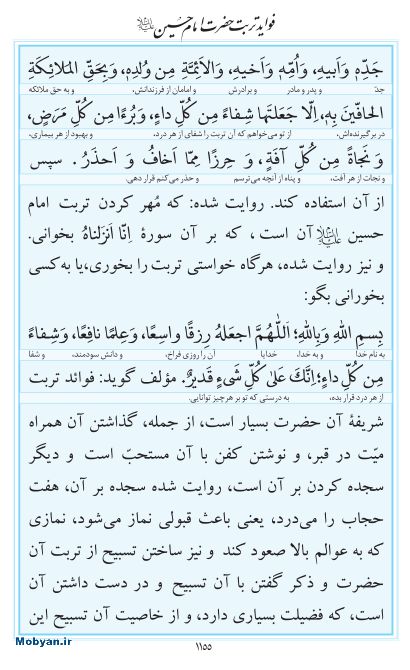 فواید تربت حضرت امام حسین علیه‌السلام
جَدِّهِ وَاَبیهِ، وَاُمِّهِ وَاَخیهِ، وَالْاَئِمَّةِ مِن وُلدِهِ، وَبِحَقِّ المَلائِکَةِ
جدّ و پدر و مادر و برادرش و امامان از فرزندانش، و به حق ملائکه
الحافّینَ بِهِ، اِلّا جَعَلتَها شِفاءً مِن کُلِّ داءٍ، وَبُرءًا مِن کُلِّ مَرَضٍ،
در برگیرنده‌اش، از تو می‌خواهم که آن تربت را شفای از هر درد، و بهبود از هر بیماری،
وَ نَجاةً مِن کُلِّ آفَةٍ، وَ حِرزًا مِمّا اَخافُ وَ اَحذَرُ. سپس
و نجات از هر آفت، و پناه از آنچه می‌ترسم و حذر می‌کنم قرار دهی.
از آن استفاده کند. روایت شده: که مُهر کردن تربت امام
حسین علیه‌السلام آن است، که بر آن سورهٔ اِنّا اَنزَلناهُ بخوانی.
و نیز روایت شده، هرگاه خواستی تربت را بخوری،یا به کسی
بخورانی بگو:
بِسمِ اللهِ وَبِاللهِ؛ اَللّٰهُمَّ اجعَلهُ رِزقًا واسِعًا، وَعِلمًا نافِعًا، وَشِفاءً
به نام خدا و به خدا، خدایا آن را روزی فراخ، و دانش سودمند، و شفا
مِن کُلِّ داءٍ؛ اِنَّكَ عَلىٰ کُلِّ شَیءٍ قَدیرٌ. مؤلف گوید: فوائد تربت
از هر درد قرار بده، به درستی که تو بر هر چیز توانایی.
شریفهٔ آن حضرت بسیار است، از جمله، گذاشتن آن همراه
میّت در قبر، و نوشتن کفن با آن مستحبّ است و دیگر
سجده کردن بر آن است، روایت شده سجده بر آن، هفت
حجاب را می‌درد، یعنی باعث قبولی نماز می‌شود، نمازی
که به عوالم بالا صعود کند و نیز ساختن تسبیح از تربت آن
حضرت و ذکر گفتن با آن تسبیح و در دست داشتن آن
است، که فضیلت بسیاری دارد، و از خاصیت آن تسبیح این
Mobyan.ir
۱۱۵۵